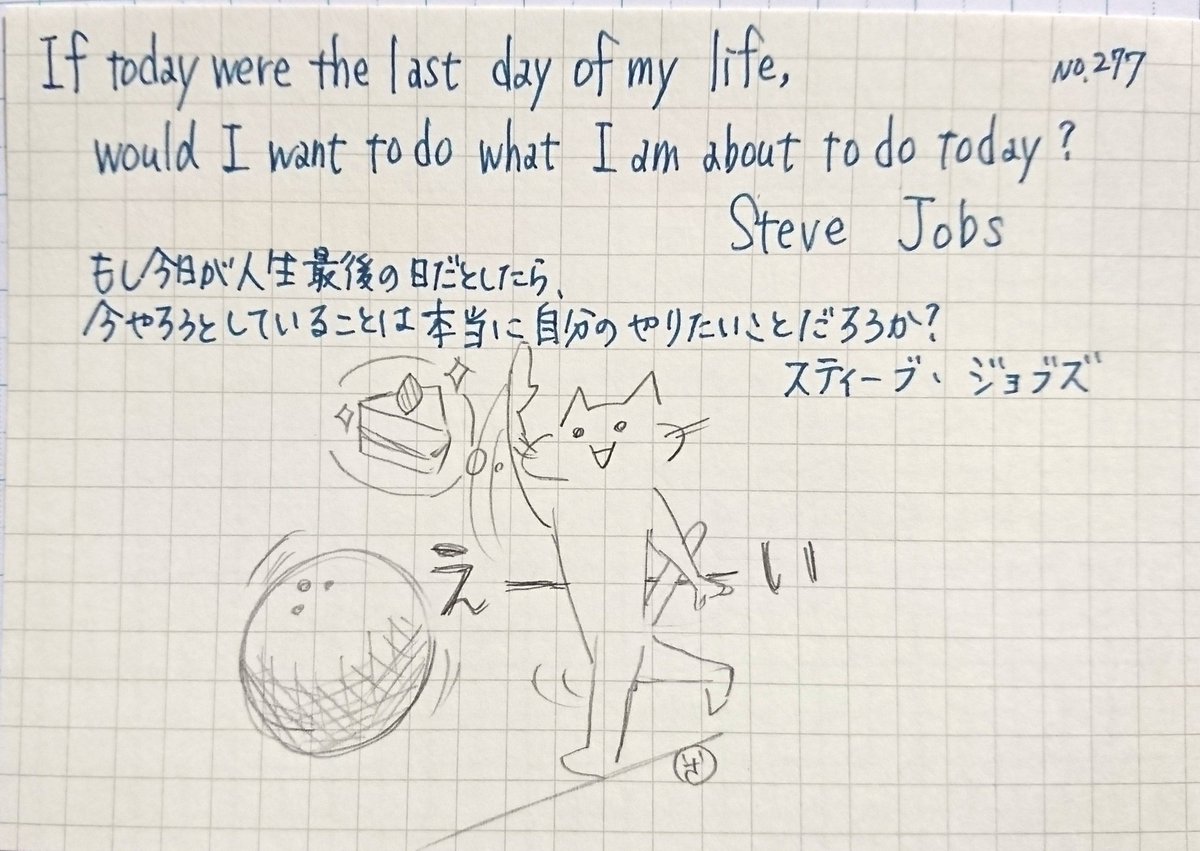 If today were the last day of my life,
No.277
would I want to do what I am about to do today?
Steve Jobs
もし今日が人生最後の日だとしたら、
今やろうとしていることは本当に自分のやりたいことだろうか?
スティーブ・ジョブズ
えーい